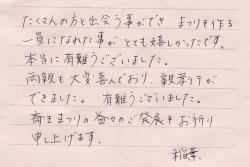 たくさんの方と出会う事ができ、まつりを作る
一員になれた事がとても嬉しかったです。
本当に有難うございました。
両親も大変喜んでおり、親孝行が
できました。有難うございました。
まつりの益々のご発展をお祈り
申し上げます。
稲葉